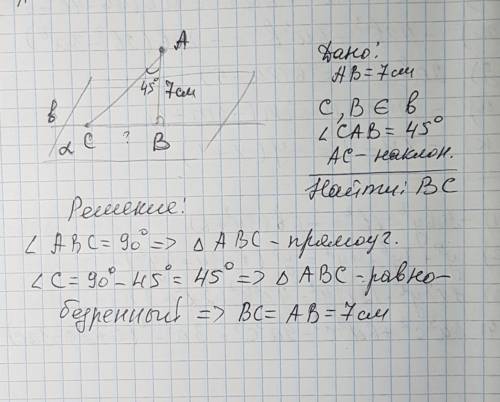 A
45° 7см
в
α C ? B
Дано:
AB = 7см
C, B ∈ в
∠CAB = 45°
AC - наклон.
Найти: BC
Решение:
∠ABC = 90° => △ABC - прямоуг.
∠C = 90° - 45° = 45° => △ABC - равно-
бедренный => BC = AB = 7см